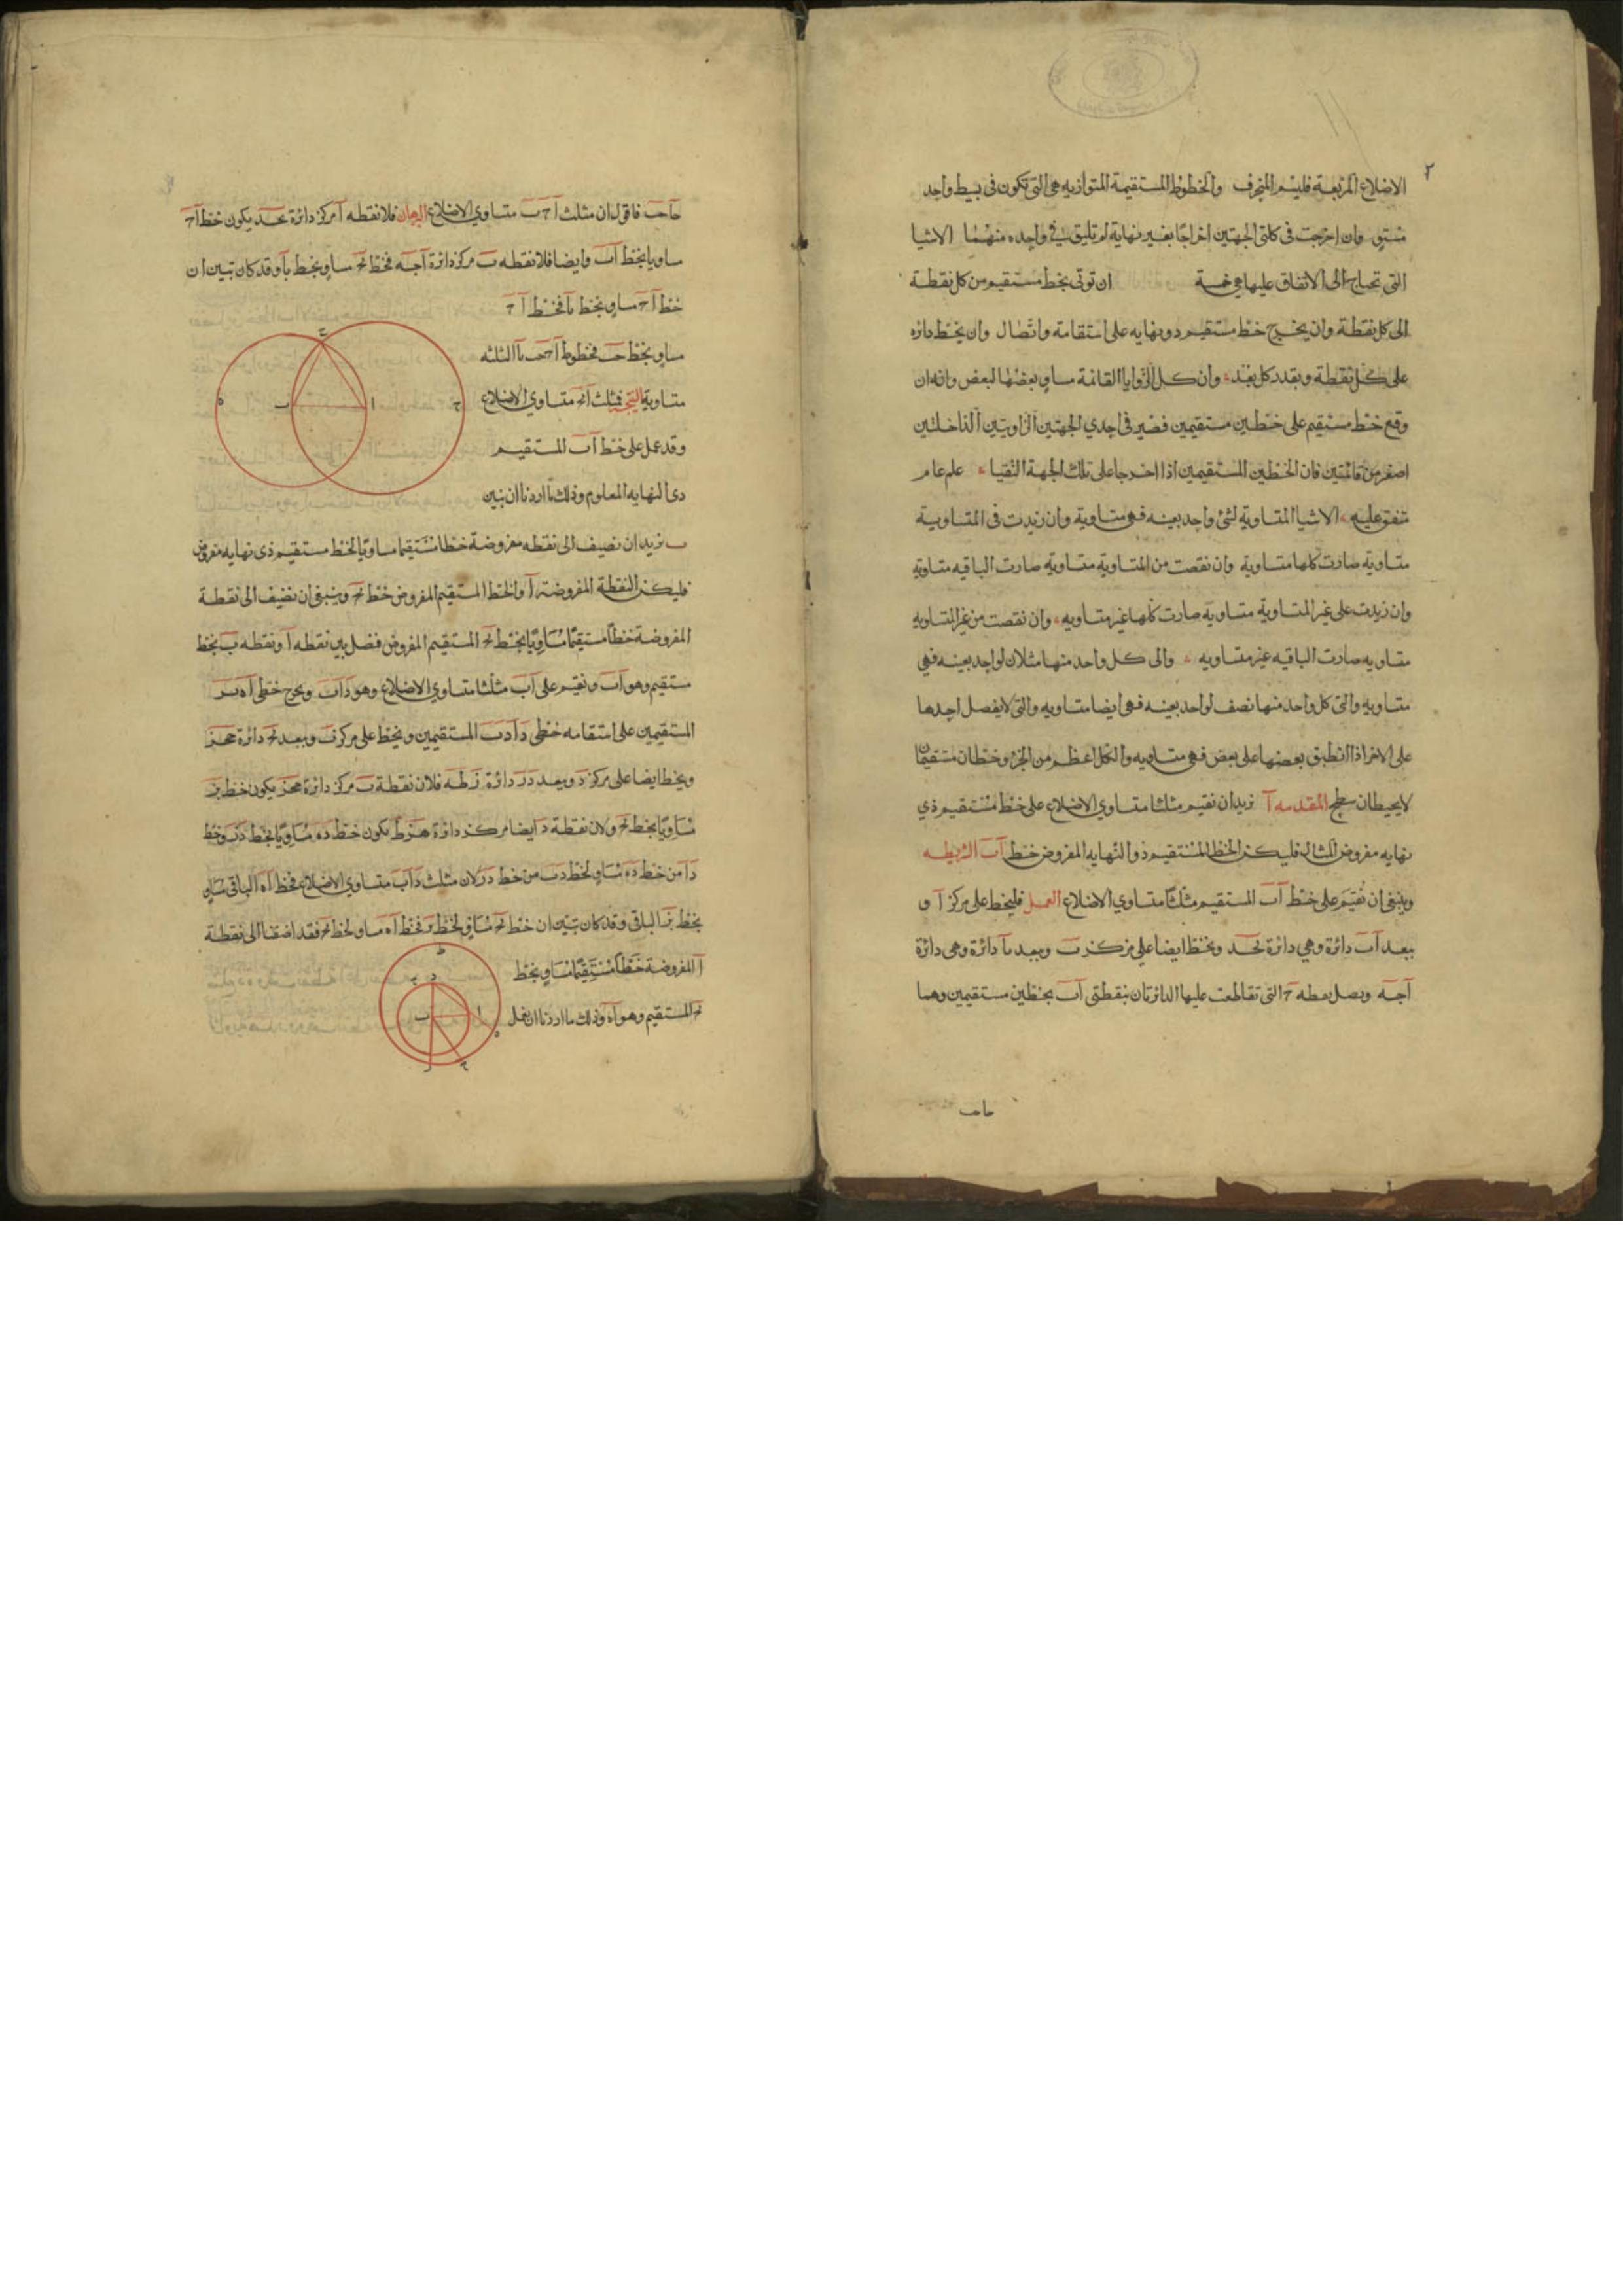 ٢
الاضلاع المربعة فليسم المنحرف والخطوط المستقيمة المتوازيه هي التي تكون في بسيط واحد
مستو وان اخرجت في كلتي الجهتين اخراجا بغير نهاية لم تلتق في واحده منهما الاشيا
التي تحتاج الى الاتفاق عليها هي خمسة ان توتى بخط مستقيم من كل نقطة
الى كل نقطة وان يخرج خط مستقيم ذو نهايه على استقامة واتصال وان يخط دائره
على كل نقطة وبقدر كل بعد وان كل الزوايا القائمة مساو بعضها لبعض وانه ان
وقع خط مستقيم على خطين مستقيمين فصير في احدي الجهتين الزاويتين الداخلتين
اصغر من قائمتين فان الخطين المستقيمين اذا اخرجا على تلك الجهة التقيا علم عام
متفق عليه الاشيا المتساوية لشئ واحد بعينه فهي متساوية وان زيدت في المتساوية
متساوية صارت كلها متساوية وان نقصت من المتساوية متساوية صارت الباقيه متساوية
وان زيدت على غير المتساوية متساوية صارت كلها غير متساويه وان نقصت من غير المتساويه
متساويه صارت الباقيه غير متساويه والى كل واحد منها مثلان لواحد بعينه فهي
متساويه والتي كل واحد منها نصف لواحد بعينه فهي ايضا متساويه والتي لا يفصل احدها
على الاخر اذا انطبق بعضها على بعض فهي متساويه والكل اعظم من الجزء وخطان مستقيمان
لا يحيطان بسطح المقدمه آ نريد ان نقيم مثلثا متساوي الاضلاع على خط مستقيم ذي
نهايه مفروض المثال فليكن الخط المستقيم ذو النهايه المفروض خط آب الشريطه
وينبغي ان نقيم على خط آب المستقيم مثلثا متساوي الاضلاع العمل فليخط على مركز آ و
ببعد آب دائرة وهي دائرة بحد ونخط ايضا على مركز ب وببعد بآ دائرة وهي دائرة
آجه ونصل نقطه ح التي تقاطعت عليها الدائرتان بنقطتي آب بخطين مستقيمين وهما
حا حب
حآ حب فاقول ان مثلث آحب متساوي الاضلاع البرهان فلان نقطه آ مركز دائرة بحد يكون خط آح
مساويا بخط آب وايضا فلان نقطه ب مركز دائرة آجه فخط بح مساو بخط بآ وقد كان تبين ان
خط آح مساو بخط بآ فخط آح
مساو بخط حب فخطوط آح حب بآ الثلثه
متساوية النتيجه فمثلث آبح متساوي الاضلاع
وقد عمل على خط آب المستقيم
ذى النهايه المعلوم وذلك ما اردنا ان نبين
ب نريد ان نضيف الى نقطه مفروضة خطا مستقيما مساويا لخط مستقيم ذى نهايه مفروض
فليكن النقطة المفروضة آ والخط المستقيم المفروض خط بح وينبغي ان نضيف الى نقطة
المفروضة خطا مستقيما مساويا بخط بح المستقيم المفروض فنصل بين نقطه آ ونقطه ب بخط
مستقيم وهو آب ونقيم على آب مثلثا متساوي الاضلاع وهو دآب ونخرج خطى آه بز
المستقيمين على استقامه خطى دآ دب المستقيمين ونخط على مركز ب وببعد بح دائرة
ونخط ايضا على مركز د وببعد دز دائرة زطه فلان نقطة ب مركز دائرة يكون خط بز
مساويا بخط بح ولان نقطة د ايضا مركز دائرة هزط يكون خط ده مساويا بخط دز وخط
دآ من خط ده مساو لخط دب من خط دز لان مثلث دآب متساوي الاضلاع فخط آه الباقى مساو
بخط بز الباقى وقد كان تبين ان خط بح مساو لخط بز فخط آه مساو لخط بح فقد اضفنا الى نقطة
آ المفروضة خطا مستقيما مساو بخط
بح المستقيم وهو آه وذلك ما اردنا ان نعمل